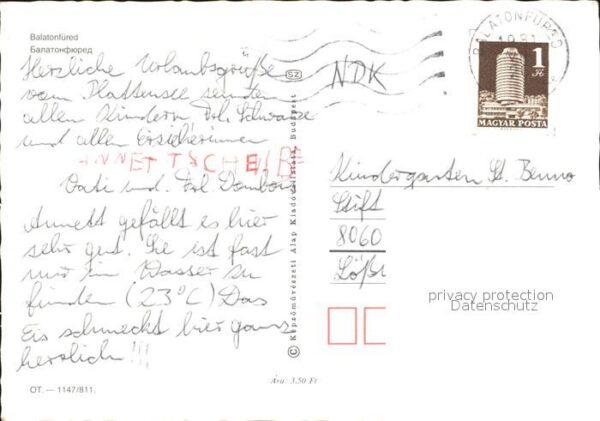 Balatonfüred
Балатонфюред
Herzliche Urlaubsgrüße
vom Plattensee senden
allen Kindern, Frl. Schwarze
und allen Erzieherinnen
ANNETT SCHEIBE
Vati und Frl.
Annett gefällt es hier
sehr gut. Sie ist fast
nur im Wasser zu
finden (23°C) Das
Eis schmeckt hier ganz
herrlich!!!
OT. — 1147/811.
SZ
© Képzőművészeti Alap Kiadóvállalata, Budapest
Ára: 3,50 Ft
NDK
BALATONFÜRED
1 Ft
MAGYAR POSTA
Kindergarten St. Benno
Stift
8060
privacy protection
Datenschutz